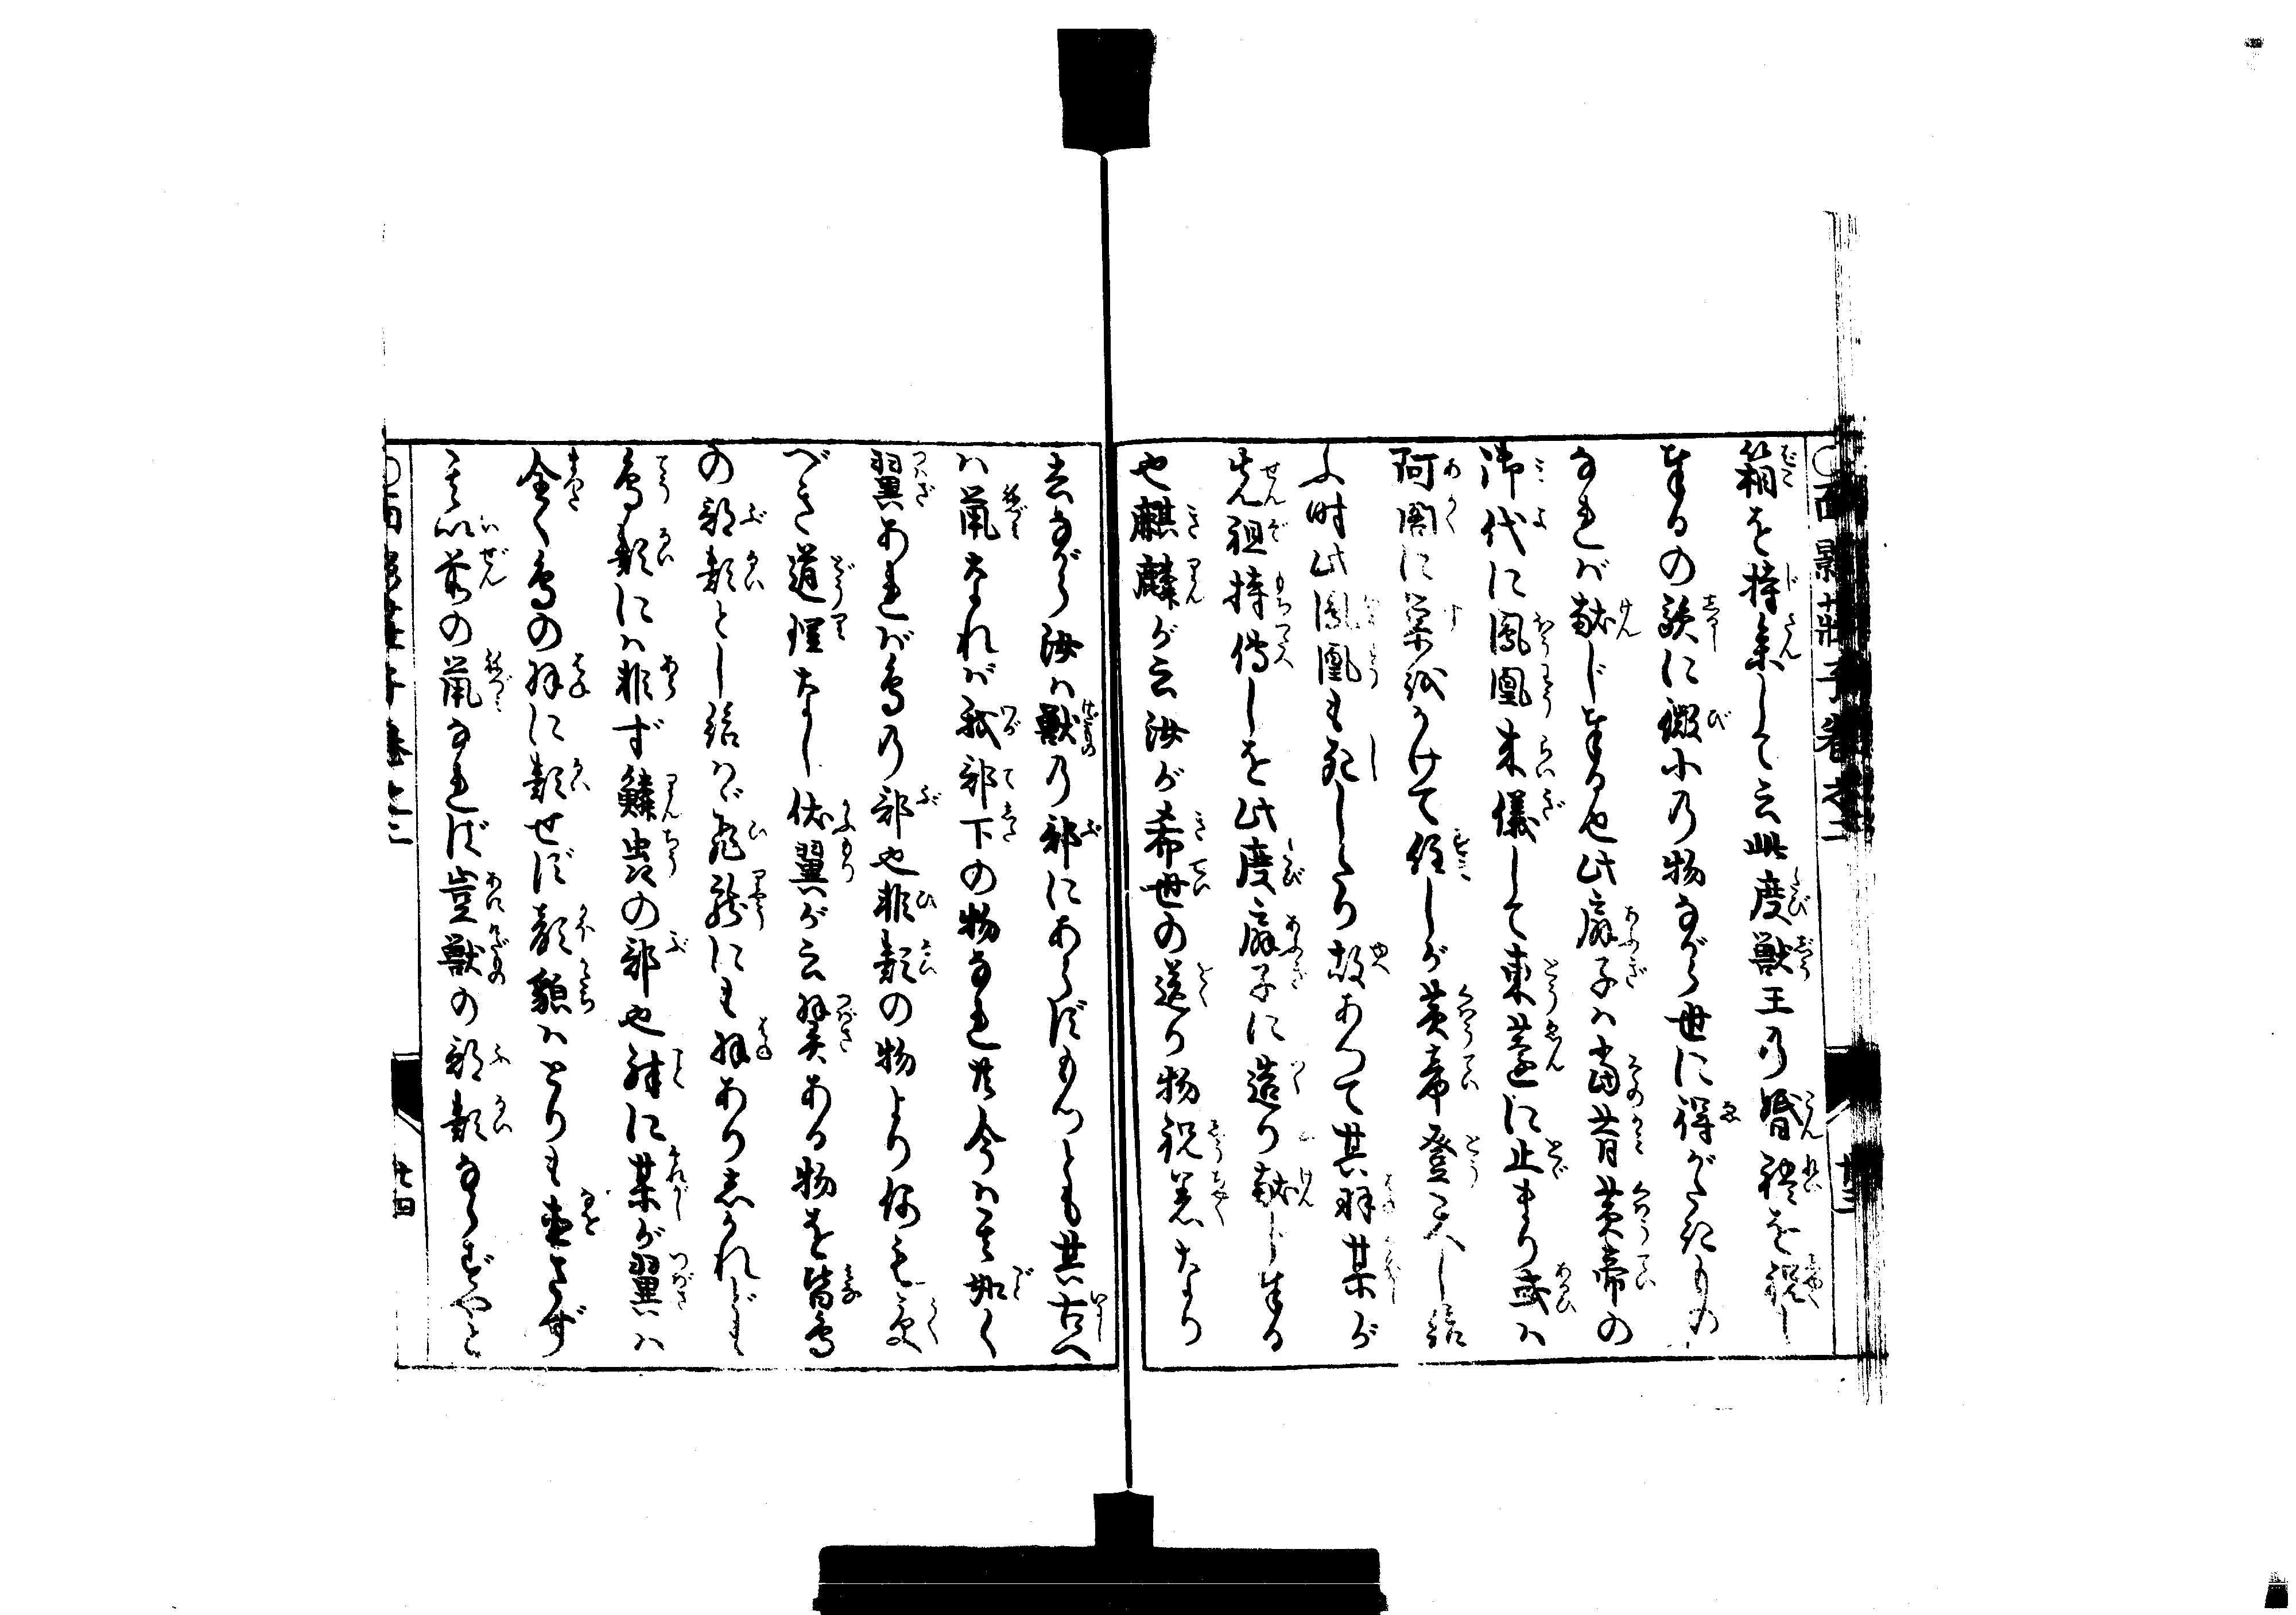 箱を持參して云此度獸王の婚禮を祝し
奉るの験に微小の物ながら世に得がたきもの
なれバ献じ奉る也此扇子ハ當昔黄帝の
御代に鳳凰来儀して東薗に止まり或ハ
阿閣に巣を〻けて住しが黄帝登天し給
ふ時此鳳凰も死したり故あつて其羽某が
先祖持傳しを此度扇子に造り献じ奉る
也麒麟が云汝が希世の送り物祝着なり
去ながら汝ハ獸の部にあらずもつとも其古へ
ハ鼠なれバ我部下の物なれ共今ハ其如く
翼あれバ鳥の部也非類の物より何そ受
べき道理なし伏翼が云翼ある物を皆鳥
の部類とし給ハヾ飛龍にも羽ありしかれども
鳥類にハ非ず鱗虫の部也殊に某が翼ハ
全く鳥の羽に類せず顔貌ハとりも直さず
其以前の鼠なれば豈獸の部類ならずやと